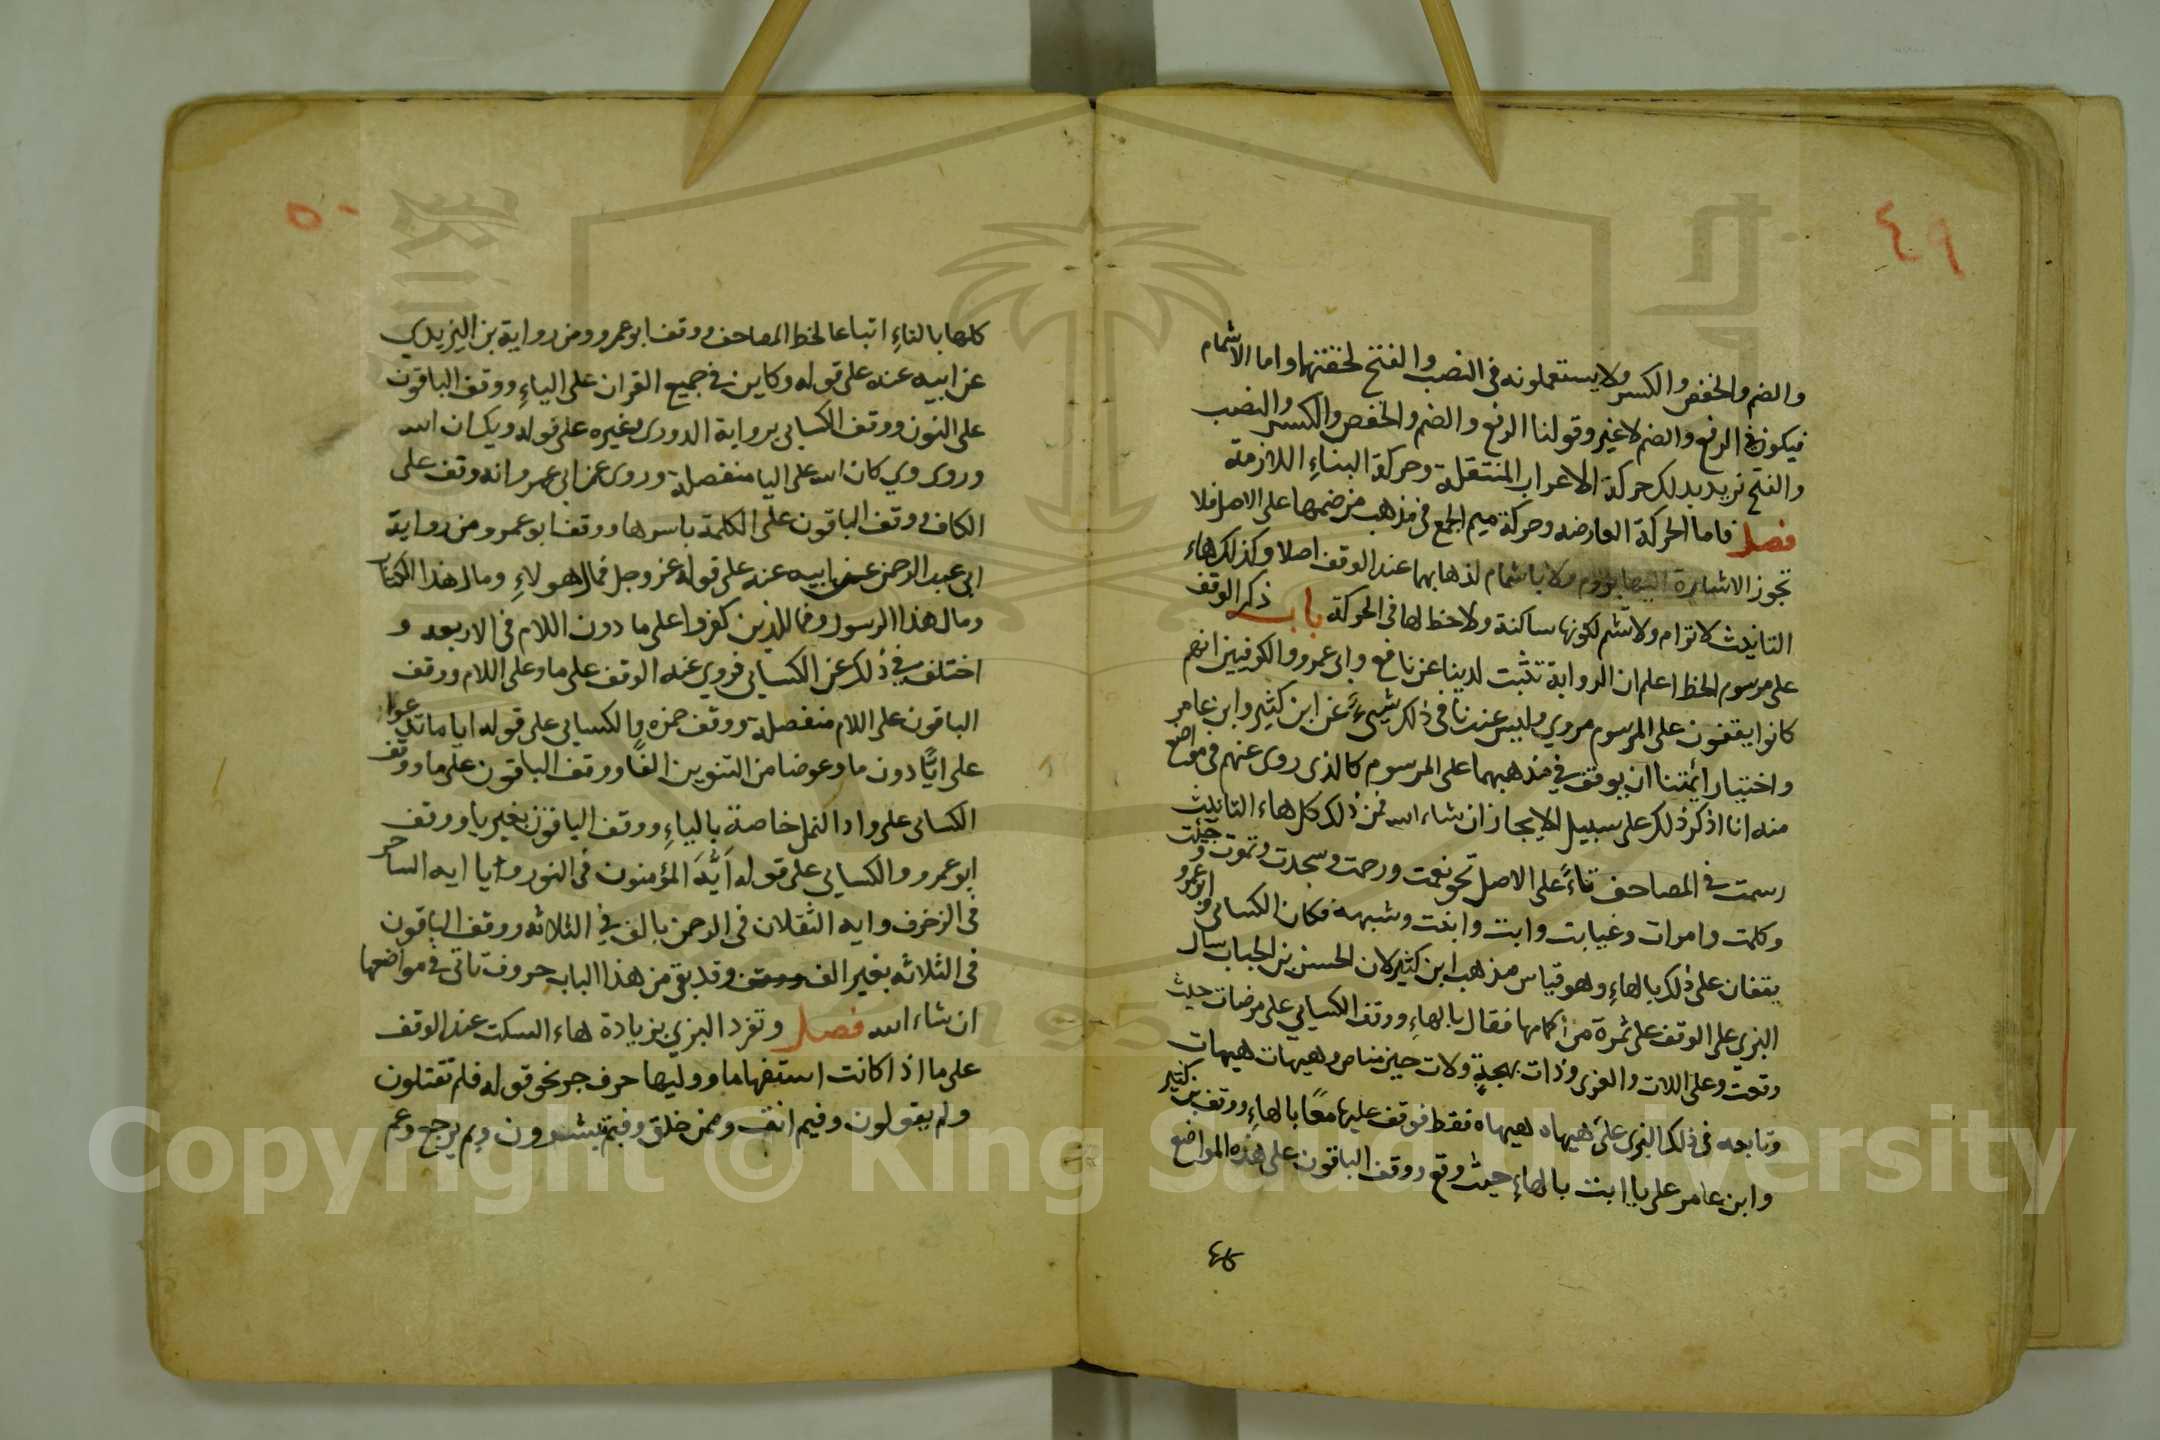 ٤٩
والضم والخفض والكسر ولا يستعملونه في النصب والفتح لخفتهما واما الاشمام
فيكون في الرفع والضم لاغير وقولنا الرفع والضم والخفض والكسر والنصب
والفتح نريد بذلك حركة الاعراب المنتقلة وحركة البناء اللازمة
فصل فاما الحركة العارضه وحركة ميم الجمع في مذهب من ضمها على الاصل فلا
تجوز الاشارة اليها بروم ولا باشمام لذهابهما عند الوقف اصلا وكذلك هاء
التانيث لا ترام ولا تشم لكونها ساكنة ولا حظ لها في الحركة باب ذكر الوقف
على مرسوم الخط اعلم ان الرواية تثبت لدينا عن نافع وابي عمرو والكوفيين انهم
كانوا يقفون على المرسوم مروي وليس عندنا في ذلك شيءً عن ابن كثير وابن عامر
واختيار ائمتنا ان يوقف في مذهبهما على المرسوم كالذى روى عنهم في مواضع
منه انا اذكر ذلك على سبيل الايجاز ان شاء الله فمن ذلك كل هاء التانيث
رسمت في المصاحف تاءً على الاصل نحو نعمت ورحمت وسجدت وتموت وجئت
وكلمت وامرات وغيابت وابت وابنت وشبهه فكان الكسائي وابو عمرو
يقفان على ذلك بالهاء وهو قياس مذهب ابن كثير لان الحسن بن الحباب سال
البزي على الوقف على ثمرة من اكمامها فقال بالهاء ووقف الكسائي على مرضات حيث
وقعت وعلى اللات والعزى وذات بهجةٍ ولات حين مناص وهيهات هيهات
وتابعه في ذلك البزي على هيهاه هيهاه فقط فوقف عليها معًا بالهاء ووقف بن كثير
وابن عامر على يا ابت بالهاء حيث وقع ووقف الباقون على هذه المواضع
٥٠
كلها بالتاء اتباعا لخط المصاحف ووقف ابو عمرو من رواية بن اليزيدي
عن ابيه عنه على قوله وكاين في جميع القران على الياء ووقف الباقون
على النون ووقف الكسائي برواية الدورى بغيره على قوله ويكان الله
وروى وي كان الله على اليا منفصلة وروى عن ابي عمرو انه وقف على
الكاف ووقف الباقون على الكلمة باسرها ووقف ابو عمرو من رواية
ابي عبد الرحمن عن ابيه عنه على قوله عز وجل فمال هولاء ومال هذا الكتاب
ومال هذا الرسول وفمال الذين كفروا على ما دون اللام في الاربعه و
اختلف في ذلك عن الكسائي فروي عنه الوقف على ما وعلى اللام ووقف
الباقون على اللام منفصلة ووقف حمزه والكسائي على قوله ايا ما تدعوا
على ايًّا دون ما وعوضا من التنوين الفًا ووقف الباقون على ما ووقف
الكسائى على واد النمل خاصة بالياء ووقف الباقون بغير يا ووقف
ابو عمرو والكسائي على قوله اَيُّهَ المؤمنون في النور ويا ايه الساحر
في الزخرف وايه الثقلان في الرحمن بالف في الثلاثه ووقف الباقون
في الثلاثه بغير الف وقد بقى من هذا الباب حروف تاتى في مواضعها
ان شاء الله فصل وتفرد البزي بزيادة هاء السكت عند الوقف
على ما اذا كانت استفهاما ووليها حرف جر نحو قوله فلم تقتلون
ولم يقولون وفيم انت وممن خلق وفبم تبشرون وبم يرجع وعم
Copyright © King Saud University
1957